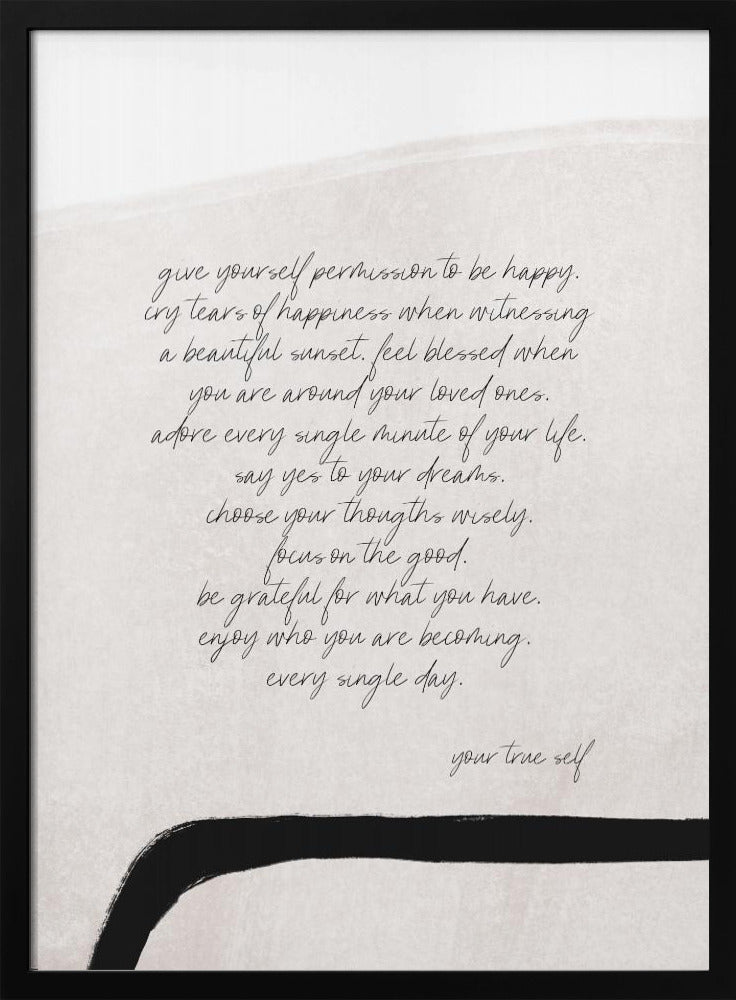 give yourself permission to be happy.
cry tears of happiness when witnessing
a beautiful sunset. feel blessed when
you are around your loved ones.
adore every single minute of your life.
say yes to your dreams.
choose your thougths wisely.
focus on the good.
be grateful for what you have.
enjoy who you are becoming.
every single day.
your true self